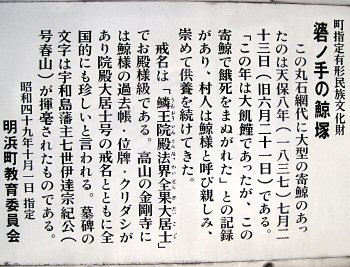 町指定有形民族文化財
碆ノ手の鯨塚
この丸石網代に大型の寄鯨のあっ
たのは天保八年(一八三七)七月二
十三日(旧六月二十一日)である。
「この年は大飢饉であったが、この
寄鯨で餓死をまぬがれた」との記録
があり、村人は鯨様と呼び親しみ、
崇めて供養を続けてきた。
戒名は「鱗王院殿法界全果大居士」
でお殿様級である。高山の金剛寺に
は鯨様の過去帳・位牌・クリダシが
あり院殿大居士号の戒名とともに全
国的にも珍しいと言われる。墓碑の
文字は宇和島藩主七世伊達宗紀公(
号春山)が揮毫されたものである。
昭和四十九年十月一日 指定
明浜町教育委員会